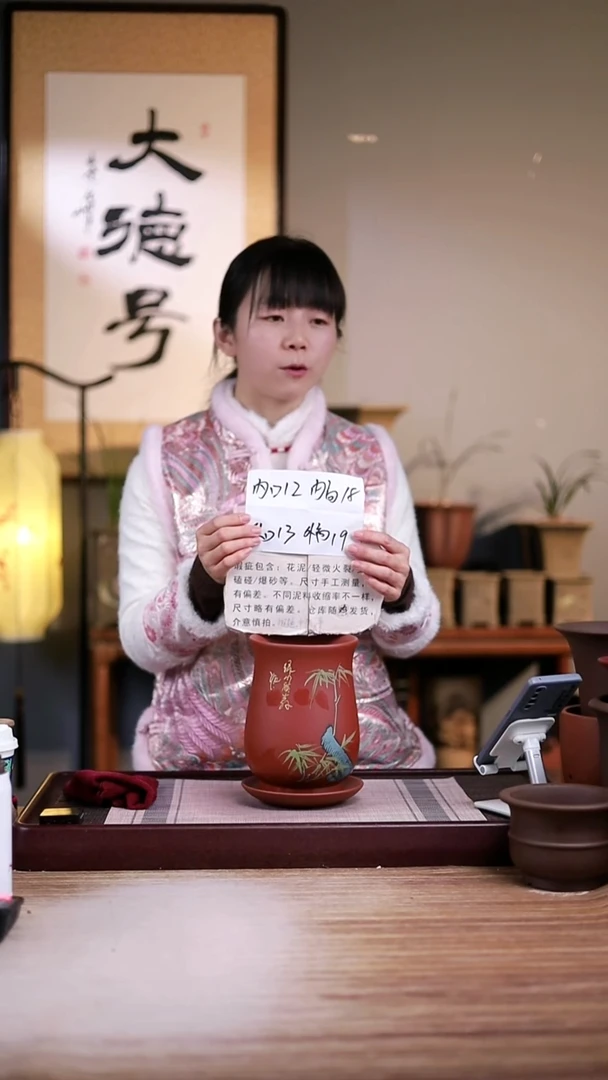 大德号
内口12 内高18
外口13 外高19
瑕疵包含：花泥/轻微火裂/
磕碰/爆砂等。尺寸手工测量，
有偏差。不同泥料收缩率不一样，
尺寸略有偏差。仓库随机发货，
介意慎拍。